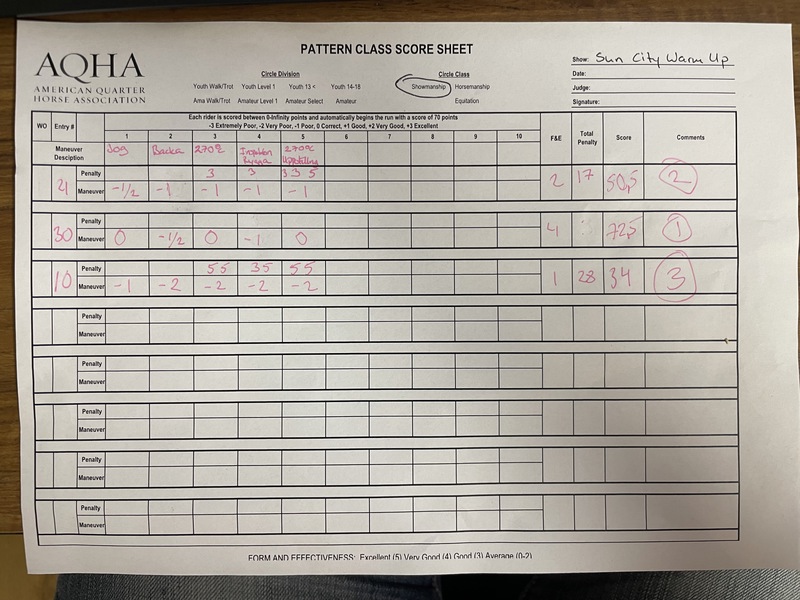 AQHA
AMERICAN QUARTER
HORSE ASSOCIATION
PATTERN CLASS SCORE SHEET
Circle Division
Youth Walk/Trot Youth Level 1 Youth 13 < Youth 14-18
Ama Walk/Trot Amateur Level 1 Amateur Select Amateur
Circle Class
Showmanship Horsemanship
Equitation
Show: Sun City Warm Up
Date:
Judge:
Signature:
Each rider is scored between 0-Infinity points and automatically begins the run with a score of 70 points
-3 Extremely Poor, -2 Very Poor, -1 Poor, 0 Correct, +1 Good, +2 Very Good, +3 Excellent
WO Entry # 1 2 3 4 5 6 7 8 9 10 F&E Total Penalty Score Comments
Maneuver Desciption Jog Backa 270° 270°
21 Penalty 3 3 3 3 5 2 17 50,5 2
Maneuver -1/2 -1 -1 -1 -1
30 Penalty 4 72,5 1
Maneuver 0 -1/2 0 -1 0
10 Penalty 5 5 3 5 5 5 1 28 34 3
Maneuver -1 -2 -2 -2 -2
Penalty
Maneuver
Penalty
Maneuver
Penalty
Maneuver
Penalty
Maneuver
Penalty
Maneuver
FORM AND EFFECTIVENESS: Excellent (5) Very Good (4) Good (3) Average (0-2)